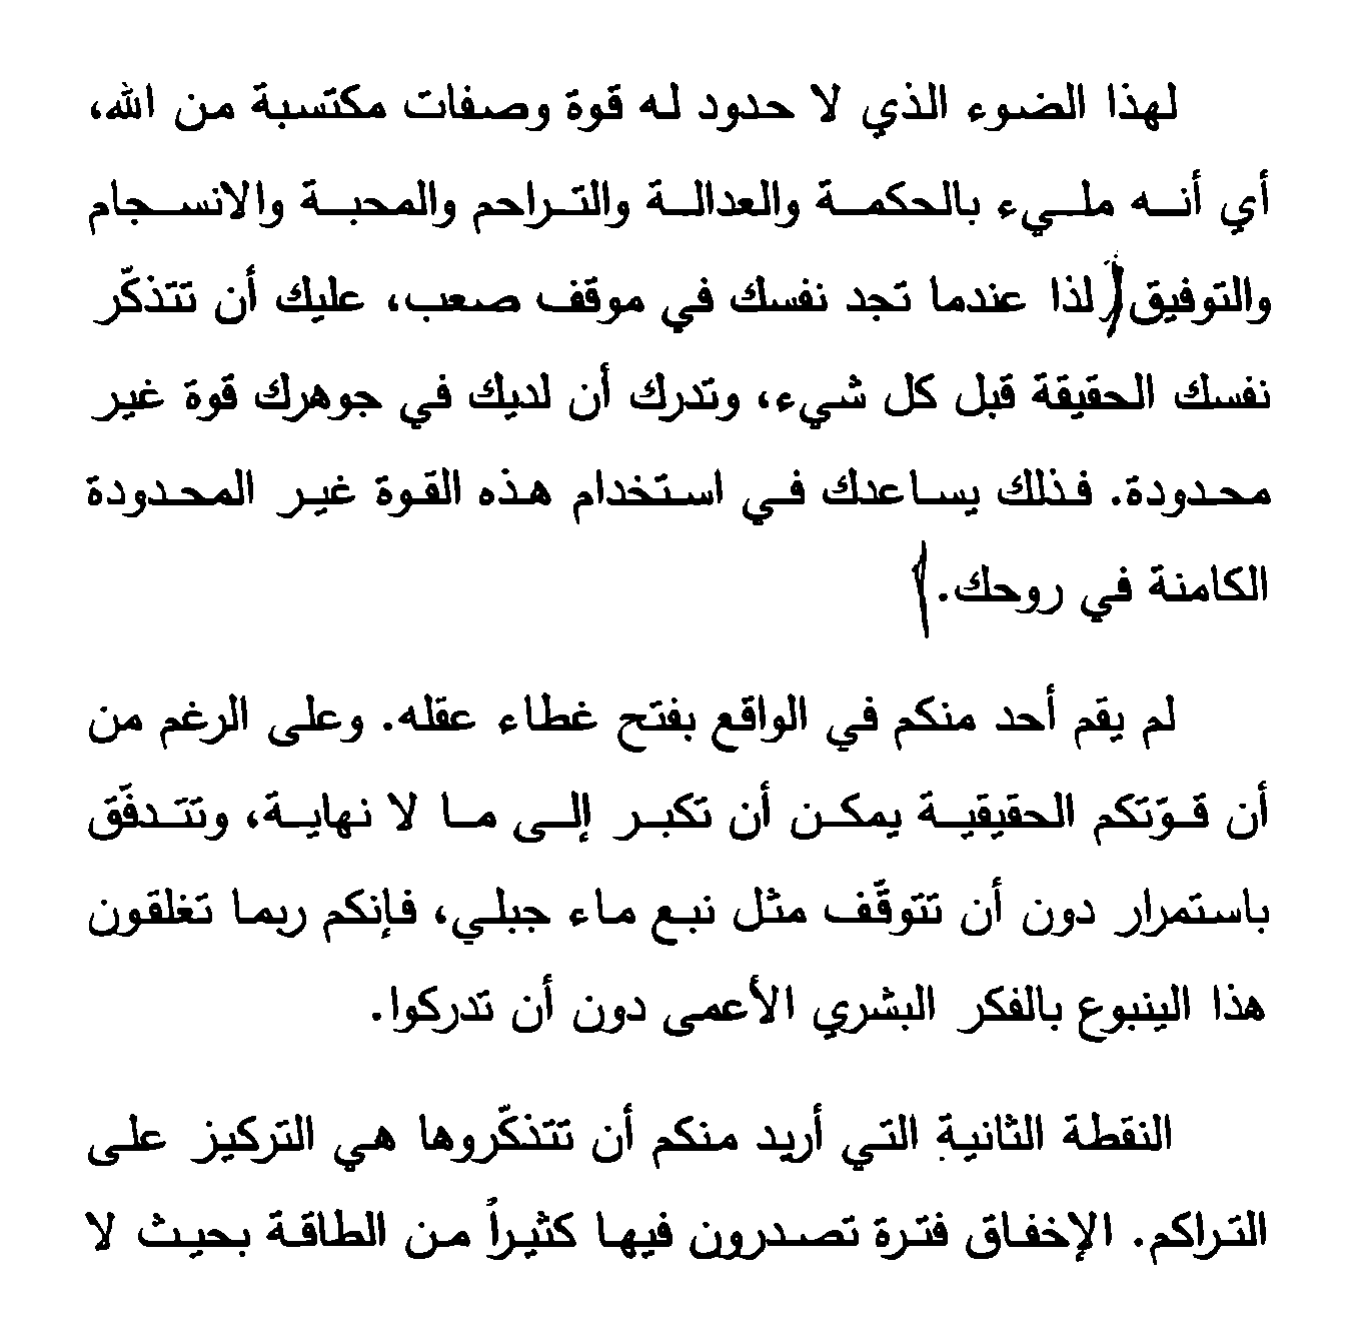 لهذا الضوء الذي لا حدود له قوة وصفات مكتسبة من الله،
أي أنه مليء بالحكمة والعدالة والتراحم والمحبة والانسجام
والتوفيق( لذا عندما تجد نفسك في موقف صعب، عليك أن تتذكّر
نفسك الحقيقة قبل كل شيء، وتدرك أن لديك في جوهرك قوة غير
محدودة. فذلك يساعدك في استخدام هذه القوة غير المحدودة
الكامنة في روحك.)
لم يقم أحد منكم في الواقع بفتح غطاء عقله. وعلى الرغم من
أن قوّتكم الحقيقية يمكن أن تكبر إلى ما لا نهاية، وتتدفّق
باستمرار دون أن تتوقّف مثل نبع ماء جبلي، فإنكم ربما تغلقون
هذا الينبوع بالفكر البشري الأعمى دون أن تدركوا.
النقطة الثانية التي أريد منكم أن تتذكّروها هي التركيز على
التراكم. الإخفاق فترة تصدرون فيها كثيراً من الطاقة بحيث لا